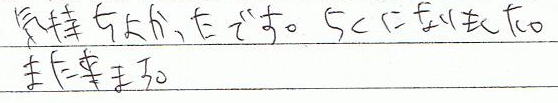 気持ちよかったです。らくになりました。
また来ます。